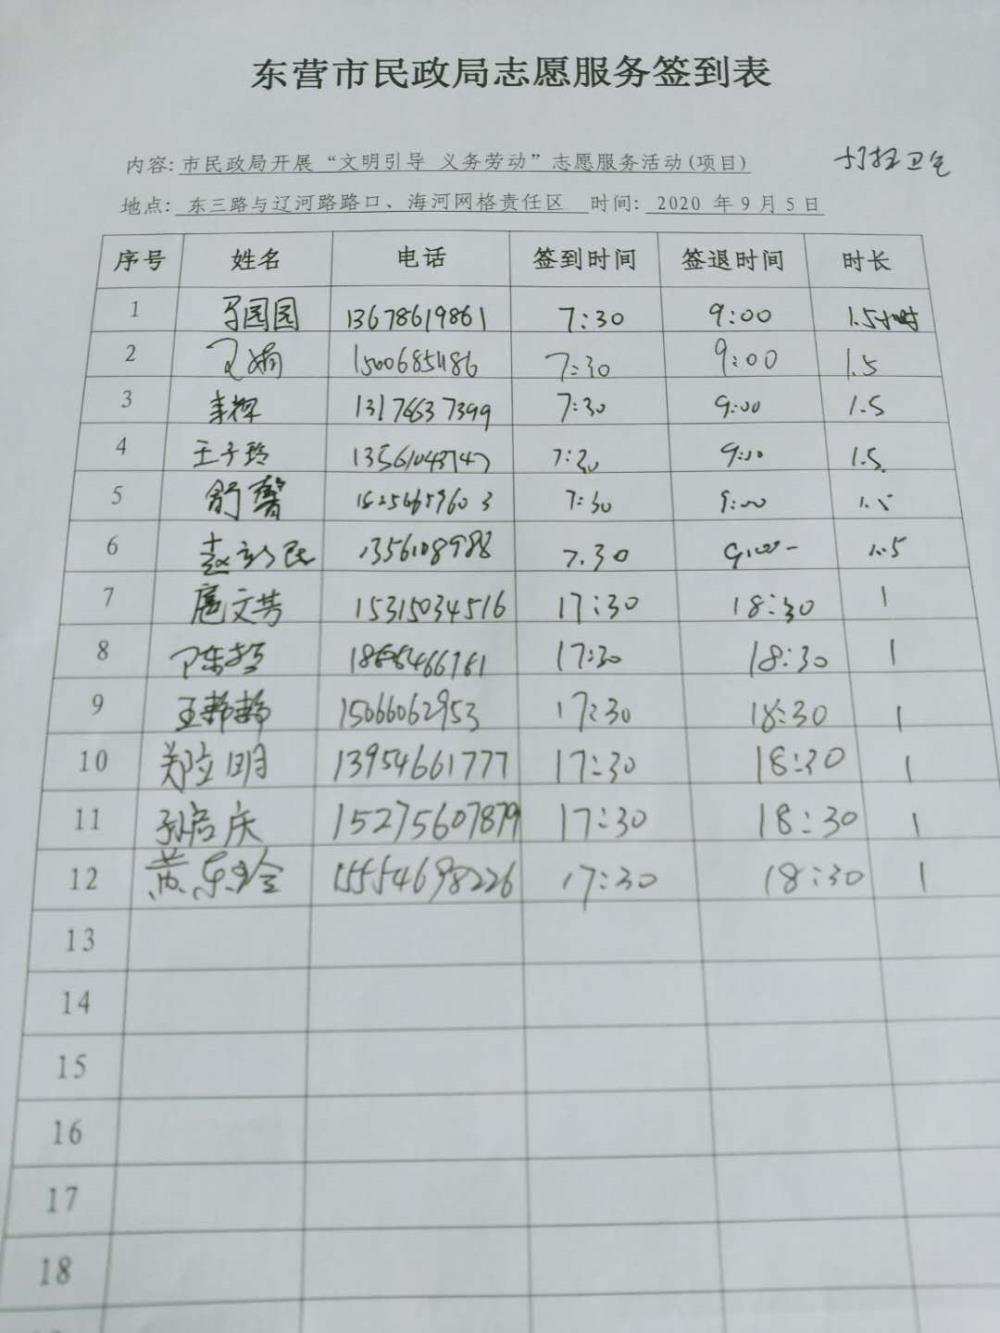 东营市民政局志愿服务签到表
内容: 市民政局开展“文明引导 义务劳动”志愿服务活动(项目) 打扫卫生
地点: 东三路与辽河路路口、海河网格责任区 时间: 2020 年 9 月 5 日
序号 姓名 电话 签到时间 签退时间 时长
1 园园 13678619861 7:30 9:00 1.5小时
2 娟 7:30 9:00 1.5
3 13176637399 7:30 9:00 1.5
4 王子玲 7:30 9:00 1.5
5 7:30 9:00 1.5
6 赵 民 7.30 9:00 1.5
7 扈文芳 15315034516 17:30 18:30 1
8 陈 17:30 18:30 1
9 王 15066062953 17:30 18:30 1
10 郑立明 13954661777 17:30 18:30 1
11 孙启庆 15275607879 17:30 18:30 1
12 黄东玲 15554698226 17:30 18:30 1
13
14
15
16
17
18